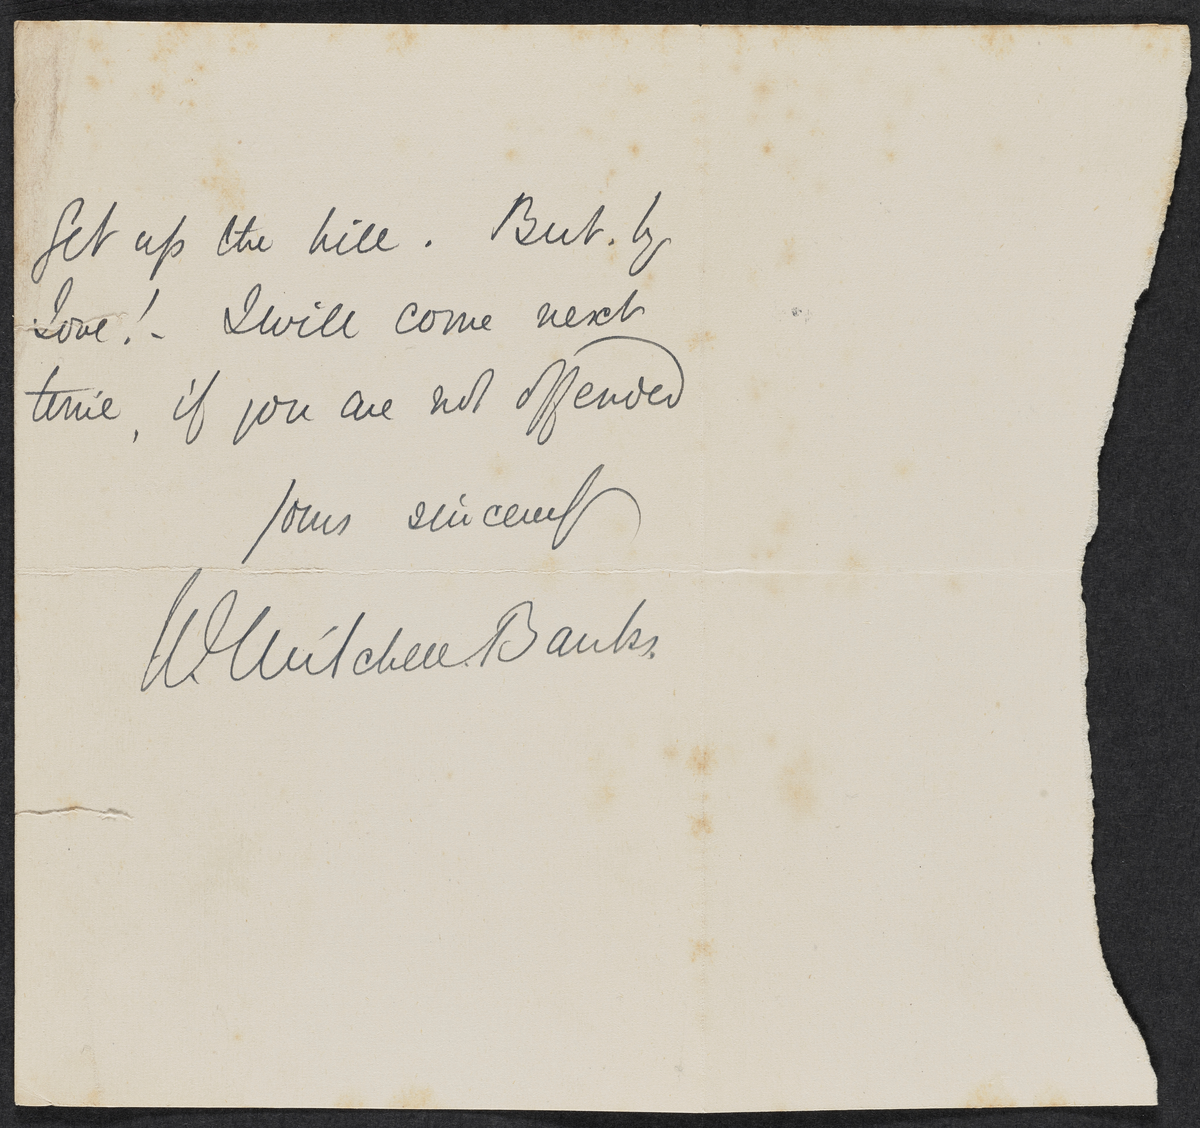 get up the hill. But, by
Jove! - I will come next
time, if you are not offended
Yours sincerely
W. Mitchell Banks.